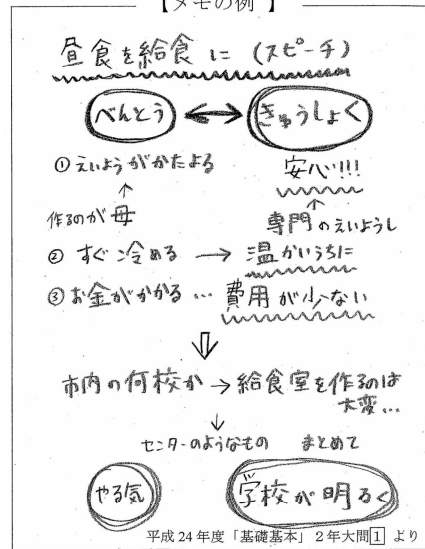 【メモの例】
昼食を給食に (スピーチ)
べんとう ↔ きゅうしょく
①えいようがかたよる 安心!!!
↑ ↑
作るのが母 専門のえいようし
②すぐ冷める → 温かいうちに
③お金がかかる… 費用が少ない
⇩
市内の何校か → 給食室を作るのは
大変…
↓
センターのようなもの まとめて
やる気 学校が明るく
平成24年度「基礎基本」2年大問1より